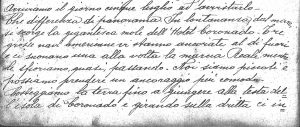 Arriviamo il giorno cinque luglio ad
Che differenza di panorama. In lontananza dal mare
si scorge la gigantesca mole dell'Hotel Coronado. Tre
grosse navi americane vi stanno ancorate al di fuori
e ci suonano una alla volta la marcia Reale, mentre
passando. Noi siamo piccoli e
possiamo prendere un ancoraggio più comodo.
la terra fino a giungere alla testa del
l'isola di Coronado e girando sulla dritta ci in